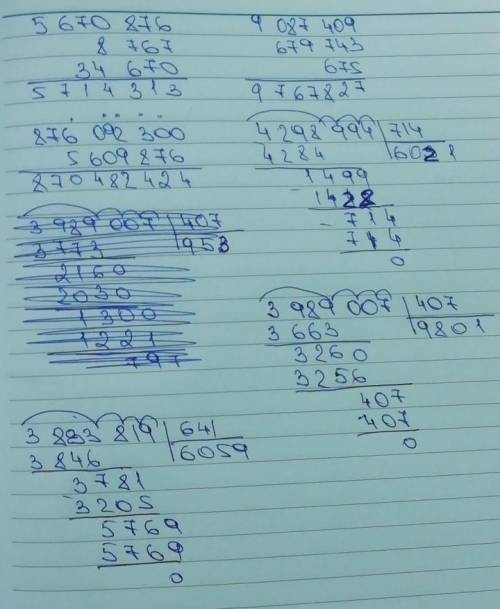 5 670 876
8 767
34 670
5 714 313
9 087 409
679 743
675
9 767 827
876 092 300
5 609 876
870 482 424
4 298 994 | 714
4284 | 6021
1499
- 1428
- 714
714
0
3 989 007 | 407
3773 | 953
2160
2030
1300
1221
797
3 989 007 | 407
3 663 | 9801
3260
3256
407
407
0
3 883 819 | 641
3 846 | 6059
3781
3205
5769
5769
0